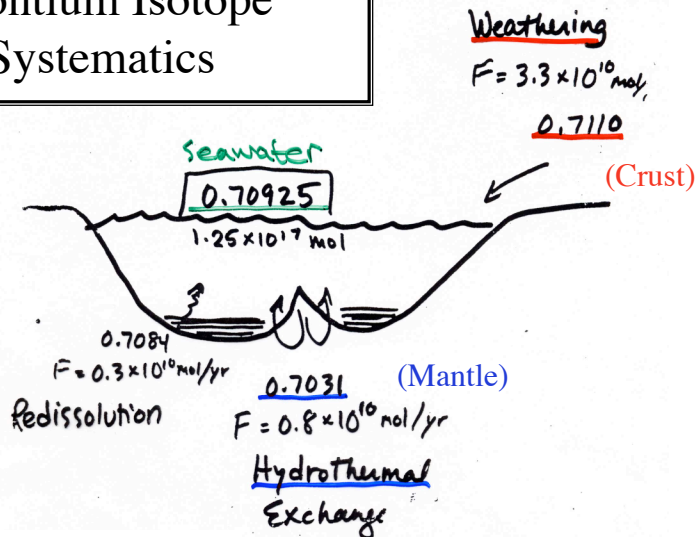 ontium Isotope
Systematics
Weathering
F = 3.3 × 10¹⁰ mol/
0.7110
(Crust)
seawater
0.70925
1.25 × 10¹⁷ mol
0.7084
F = 0.3 × 10¹⁰ mol/yr
Redissolution
0.7031
(Mantle)
F = 0.8 × 10¹⁰ mol/yr
Hydrothermal
Exchange